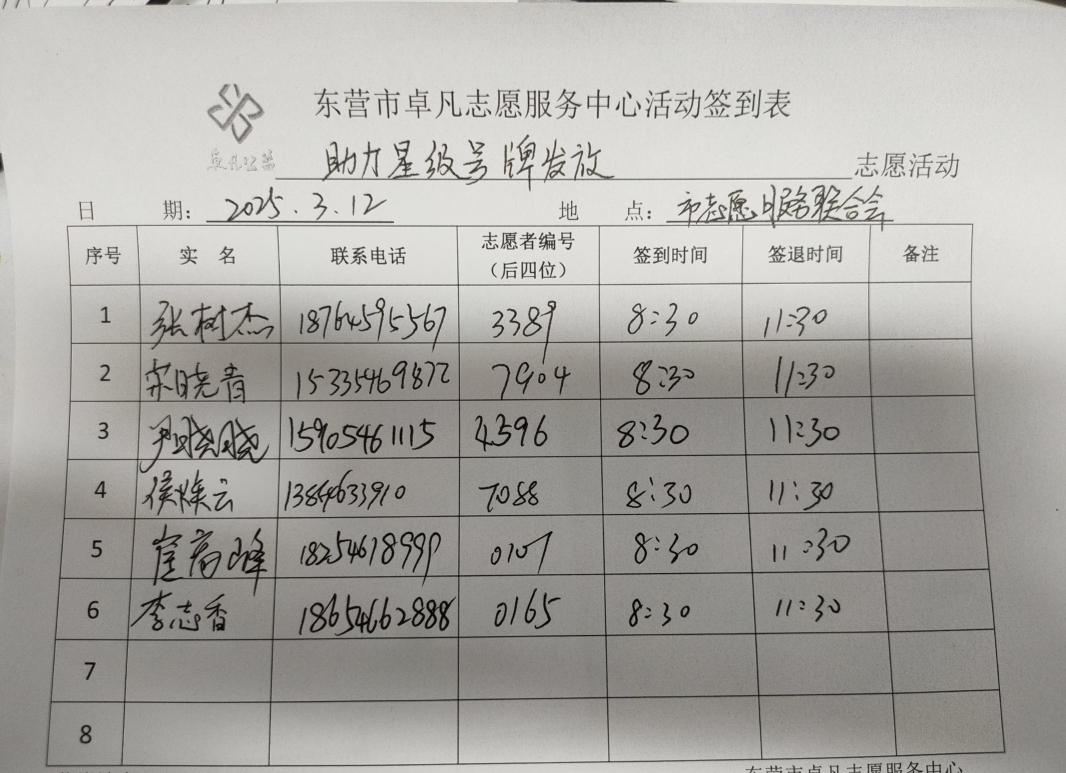 东营市卓凡志愿服务中心活动签到表
卓凡公益
助力星级号牌发放 志愿活动
日 期: 2025.3.12 地 点: 市志愿服务联合会
序号 实 名 联系电话 志愿者编号（后四位） 签到时间 签退时间 备注
1 张树杰 18764595567 3389 8:30 11:30
2 宋晓青 15335469872 7904 8:30 11:30
3 尹晓晓 15905461115 4396 8:30 11:30
4 侯焕云 13864633910 7088 8:30 11:30
5 崔高峰 18254618999 0107 8:30 11:30
6 李志香 18654662888 0165 8:30 11:30
7
8
东营市卓凡志愿服务中心